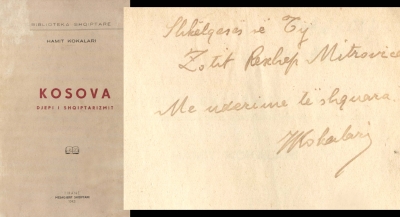 BIBLIOTEKA SHQIPTARE
HAMIT KOKALARI
KOSOVA
DJEPI I SHQIPTARIZMIT
TIRANË
Shkëlqesës së Tij
Zotit Rexhep Mitrovica
Me nderime të shquara
HKokalari